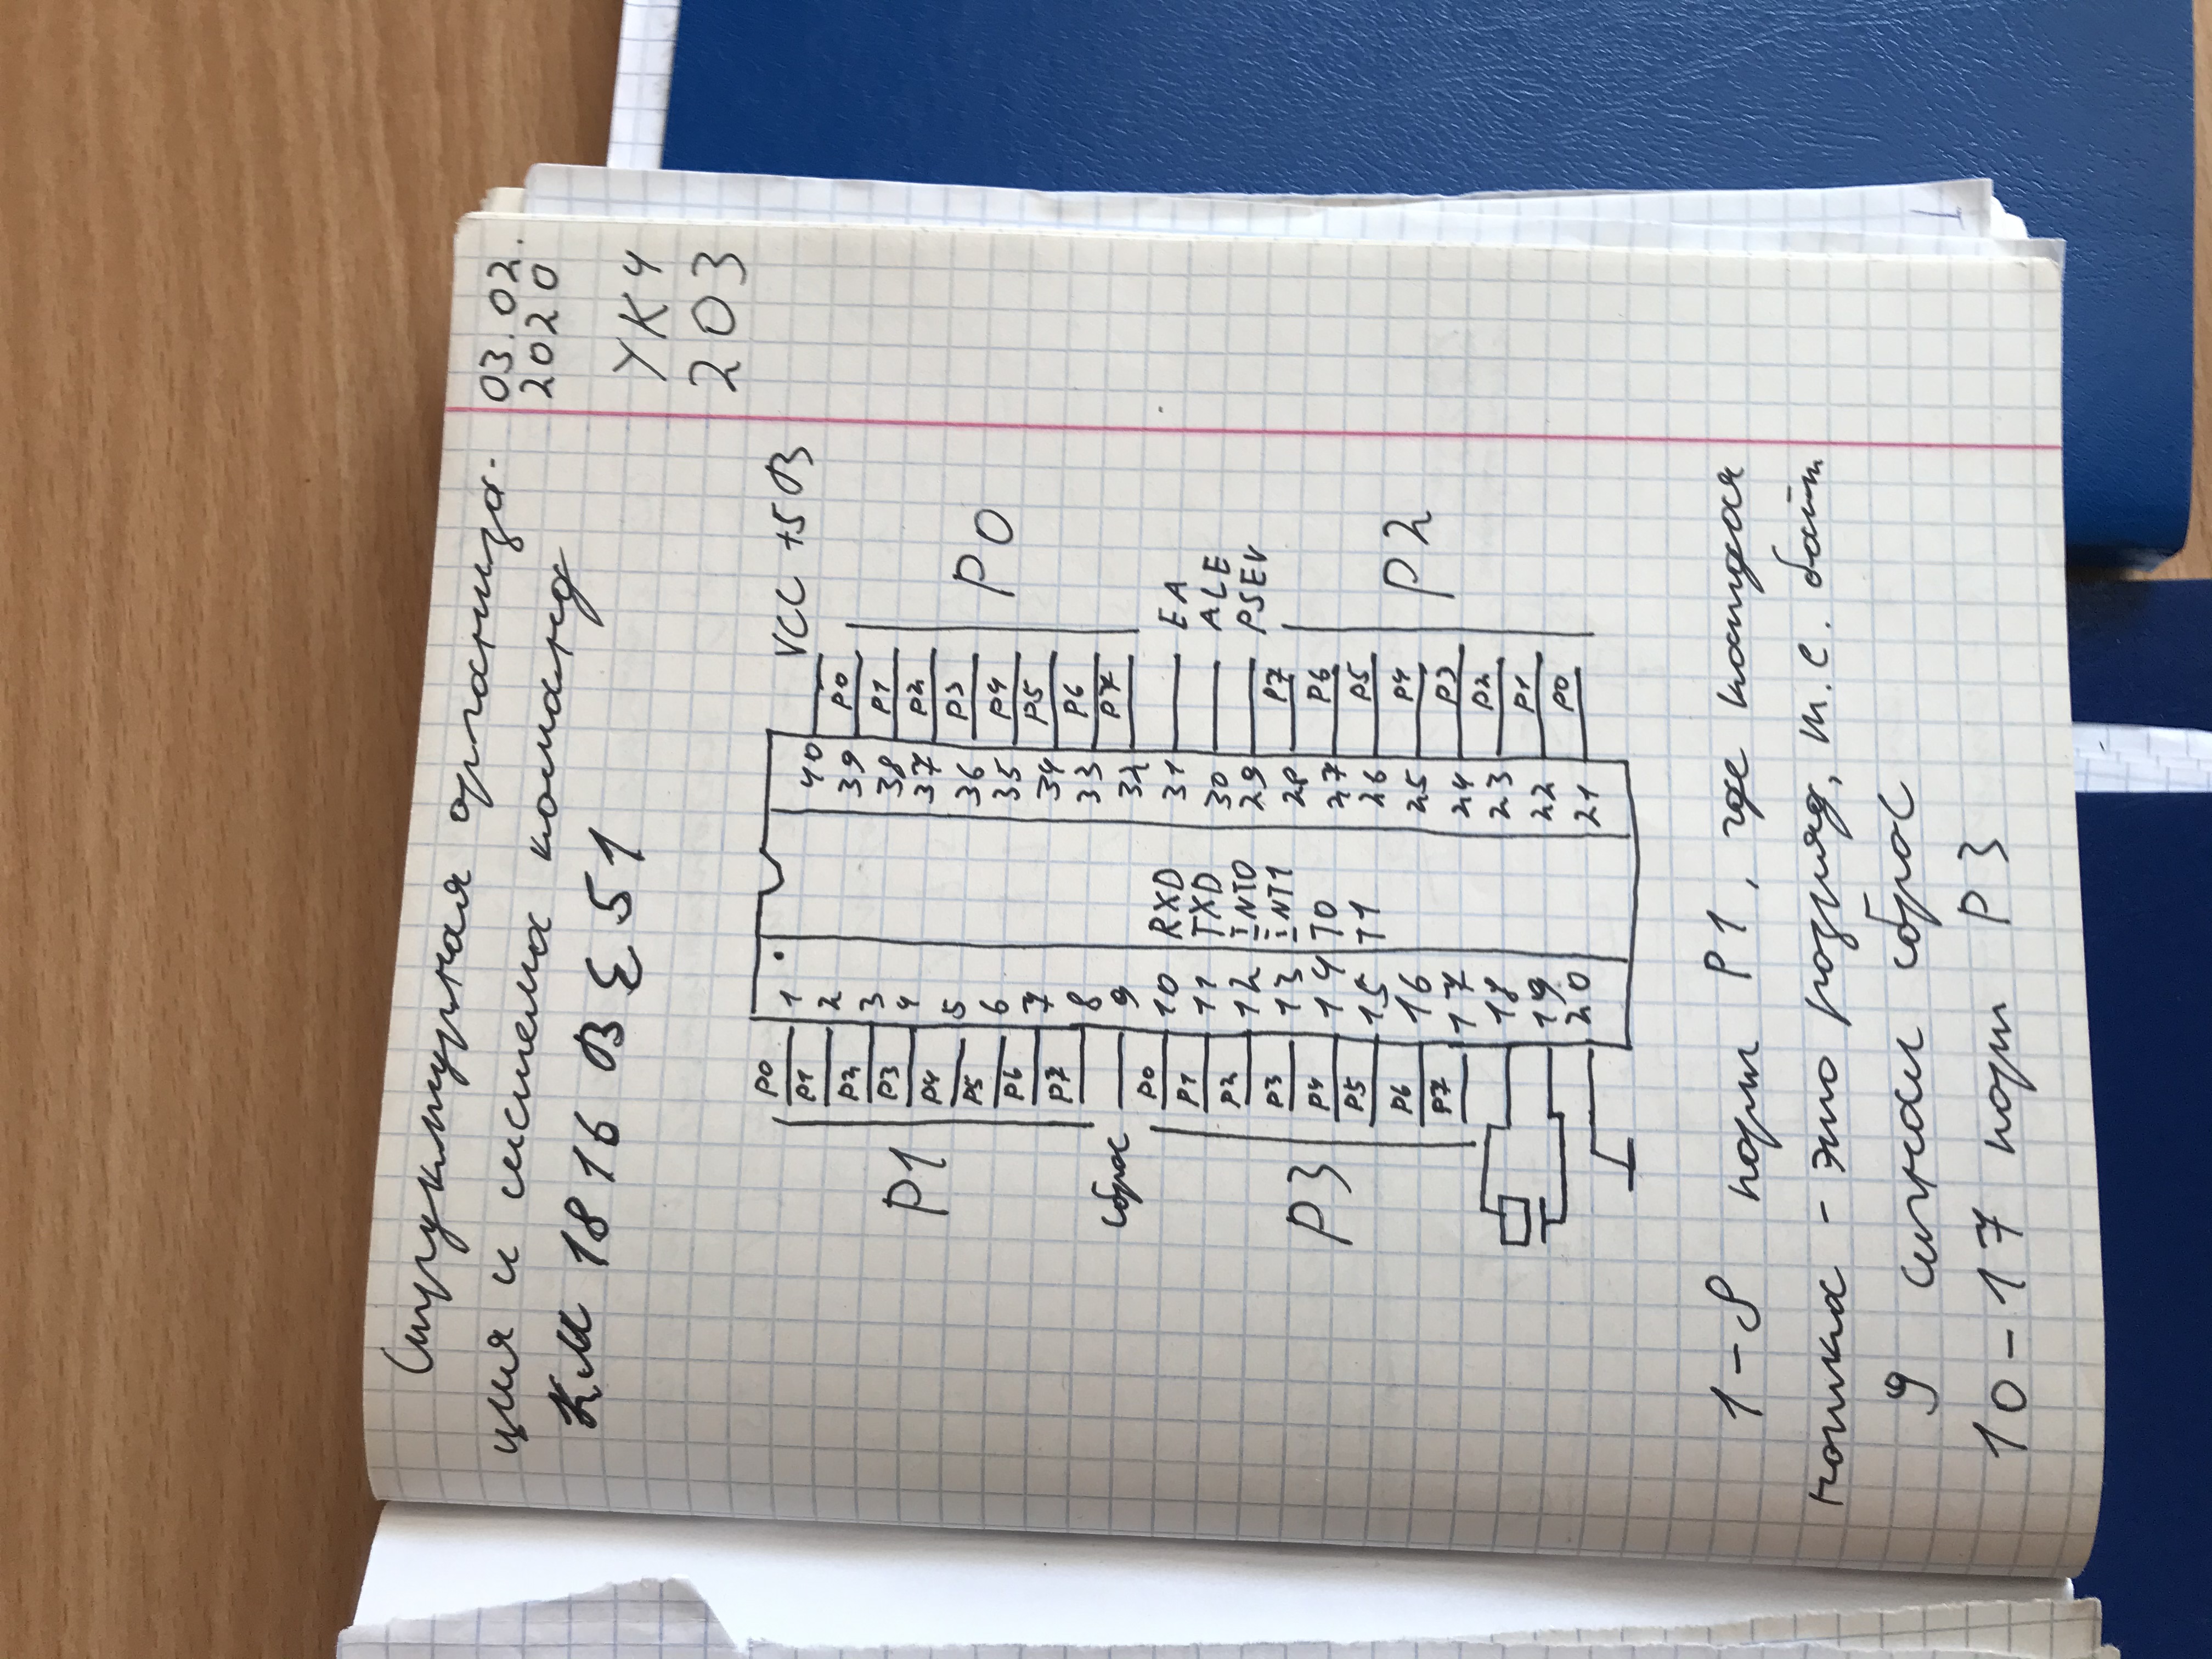 Структурная организа-
ция и система команд
КМ 1816 ВЕ 51
03.02.
2020
УК4
203
P1
P0 1
P1 2
P2 3
P3 4
P4 5
P5 6
P6 7
P7 8
сброс 9
P3
P0 10 RXD
P1 11 TXD
P2 12 INT0
P3 13 INT1
P4 14 T0
P5 15 T1
P6 16
P7 17
18
19
20
40 VCC +5В
39 P0
38 P1
37 P2
36 P3
35 P4
34 P5
33 P6
32 P7
P0
31 EA
30 ALE
29 PSEV
28 P7
27 P6
26 P5
25 P4
24 P3
23 P2
22 P1
21 P0
P2
1-8 порт P1, где каждая
ножка - это розряд, т.е. байт
9 сигнал сброс
10-17 порт P3